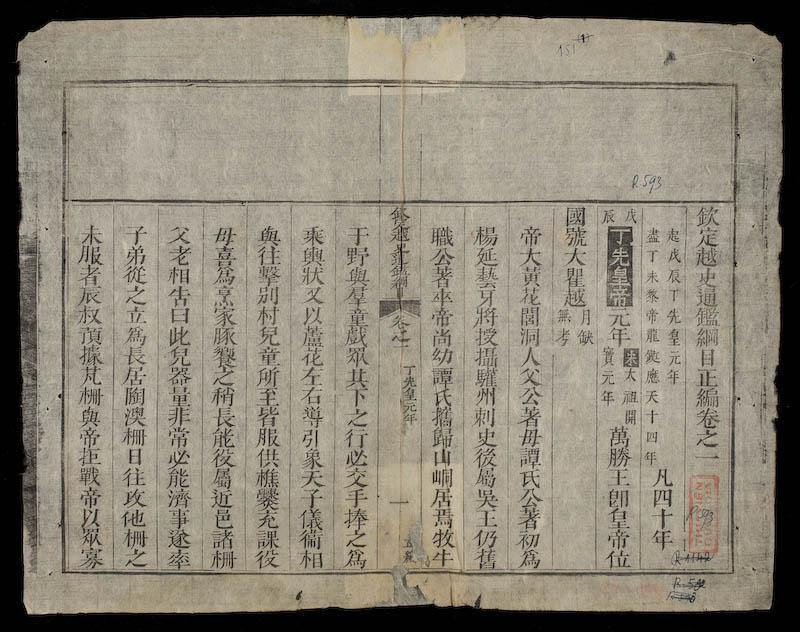 151
R.593
欽定越史通鑑綱目正編卷之一
起戊辰丁先皇元年
盡丁未黎帝龍鋌應天十四年
凡四十年
戊辰
丁先皇帝元年
宋太祖開寶元年
萬勝王卽皇帝位
國號大瞿越
月缺無考
帝大黃花閭洞人父公著母譚氏公著初爲
楊延藝牙將授攝驩州刺史後屬吳王仍舊
職公著卒帝尚幼譚氏攜歸山峒居焉牧牛
欽定越史通鑑綱目
卷之一
丁先皇元年
一
于野與羣童戲眾其下之行必交手捧之爲
乘輿狀又以蘆花左右導引象天子儀衞相
與往擊別村兒童所至皆服供樵爨充課役
母喜爲烹家豚饗之稍長能役屬近邑諸柵
父老相告曰此兒器量非常必能濟事遂率
子弟從之立爲長居陶澳柵日往攻他柵之
未服者辰叔預據芃柵與帝拒戰帝以眾寡